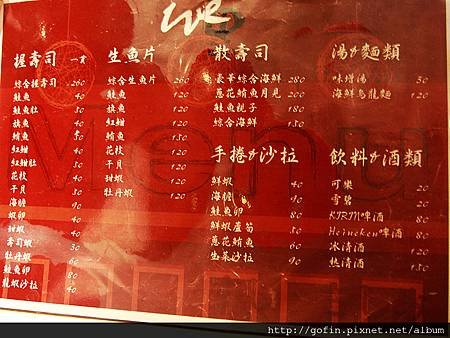 握壽司 一貫
綜合握壽司 260
鮭魚 40
鮭魚肚 50
旗魚 40
鮪魚 50
紅魽 40
紅魽肚 50
花枝 40
干貝 50
海膽 90
蝦卵 40
甜蝦 40
壽司蝦 50
鮭魚卵 80
龍蝦沙拉 40
生魚片
綜合生魚片 260
鮭魚 120
旗魚 120
鮪魚 150
紅魽 120
花枝 120
干貝 120
甜蝦 120
牡丹蝦 120
散壽司
豪華綜合海鮮 280
蔥花鮪魚月見 200
鮭魚親子 180
綜合海鮮 130
手捲&沙拉
鮮蝦 40
海膽 90
鮭魚卵 80
鮮蝦蘆筍 50
蔥花鮪魚 60
生菜沙拉 90
湯&麵類
味增湯 30
海鮮烏龍麵 120
飲料&酒類
可樂 20
雪碧 20
KIRIN啤酒 80
Heineken啤酒 80
冰清酒 120
熱清酒 150
Menu
http://gofin.pixnet.net/album